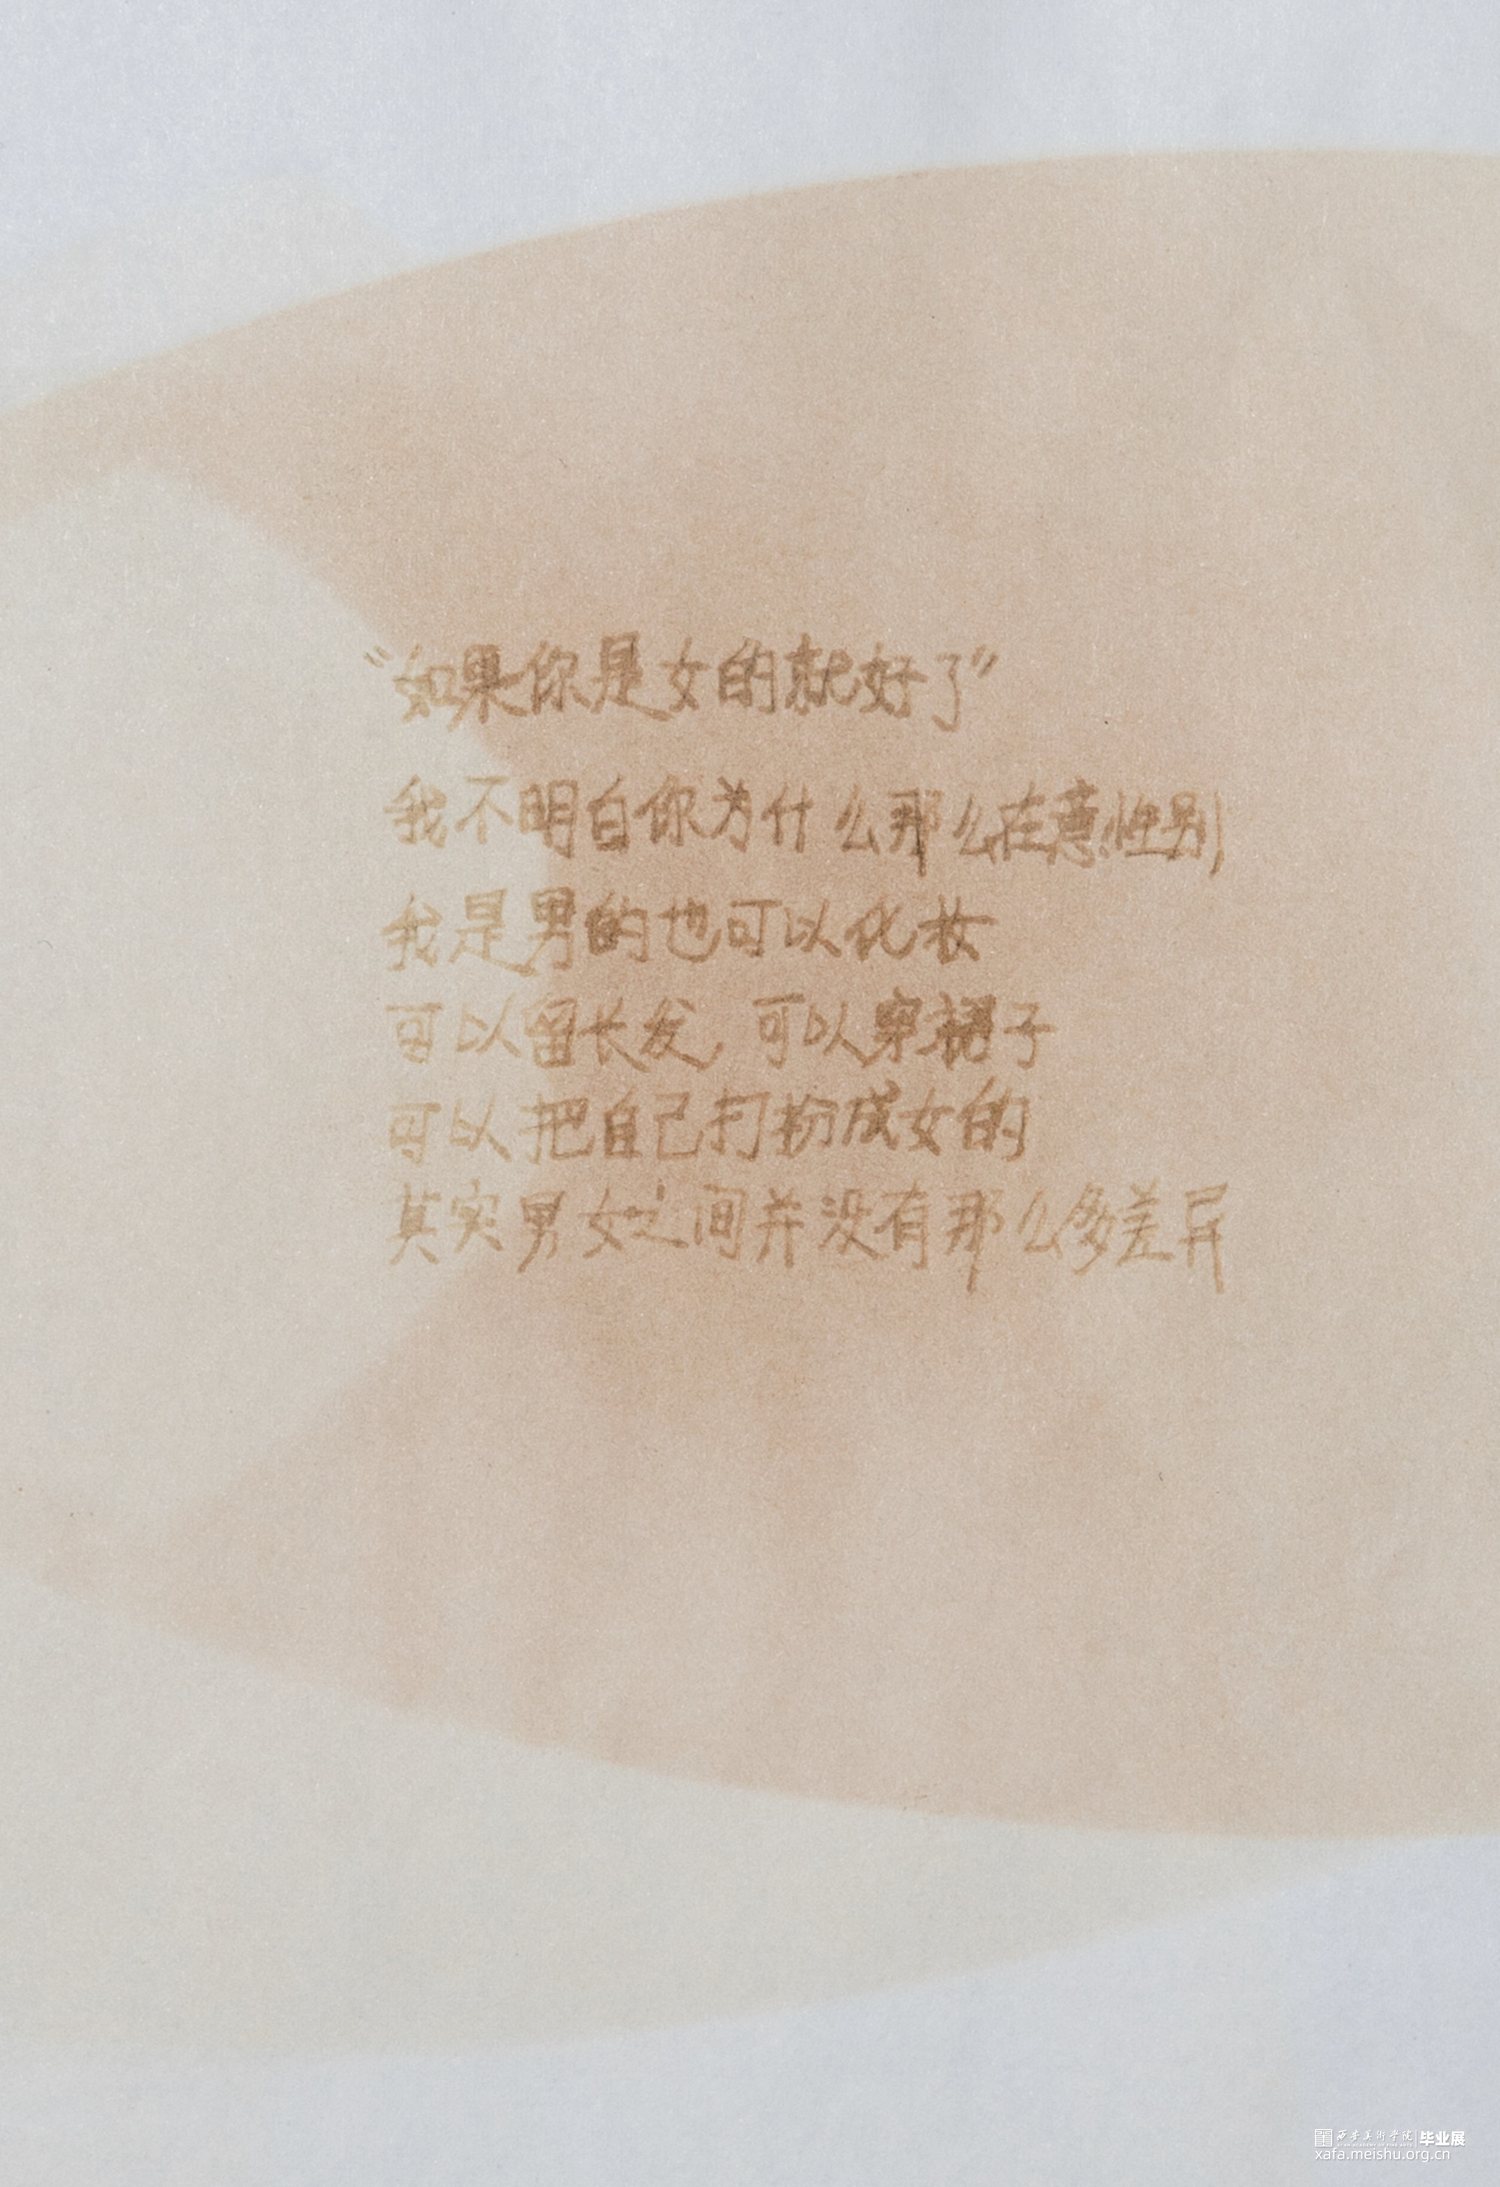 “如果你是女的就好了”
我不明白你为什么那么在意性别
我是男的也可以化妆
可以留长发,可以穿裙子
可以把自己打扮成女的
其实男女之间并没有那么多差异
西安美術学院 毕业展
xafa.meishu.org.cn